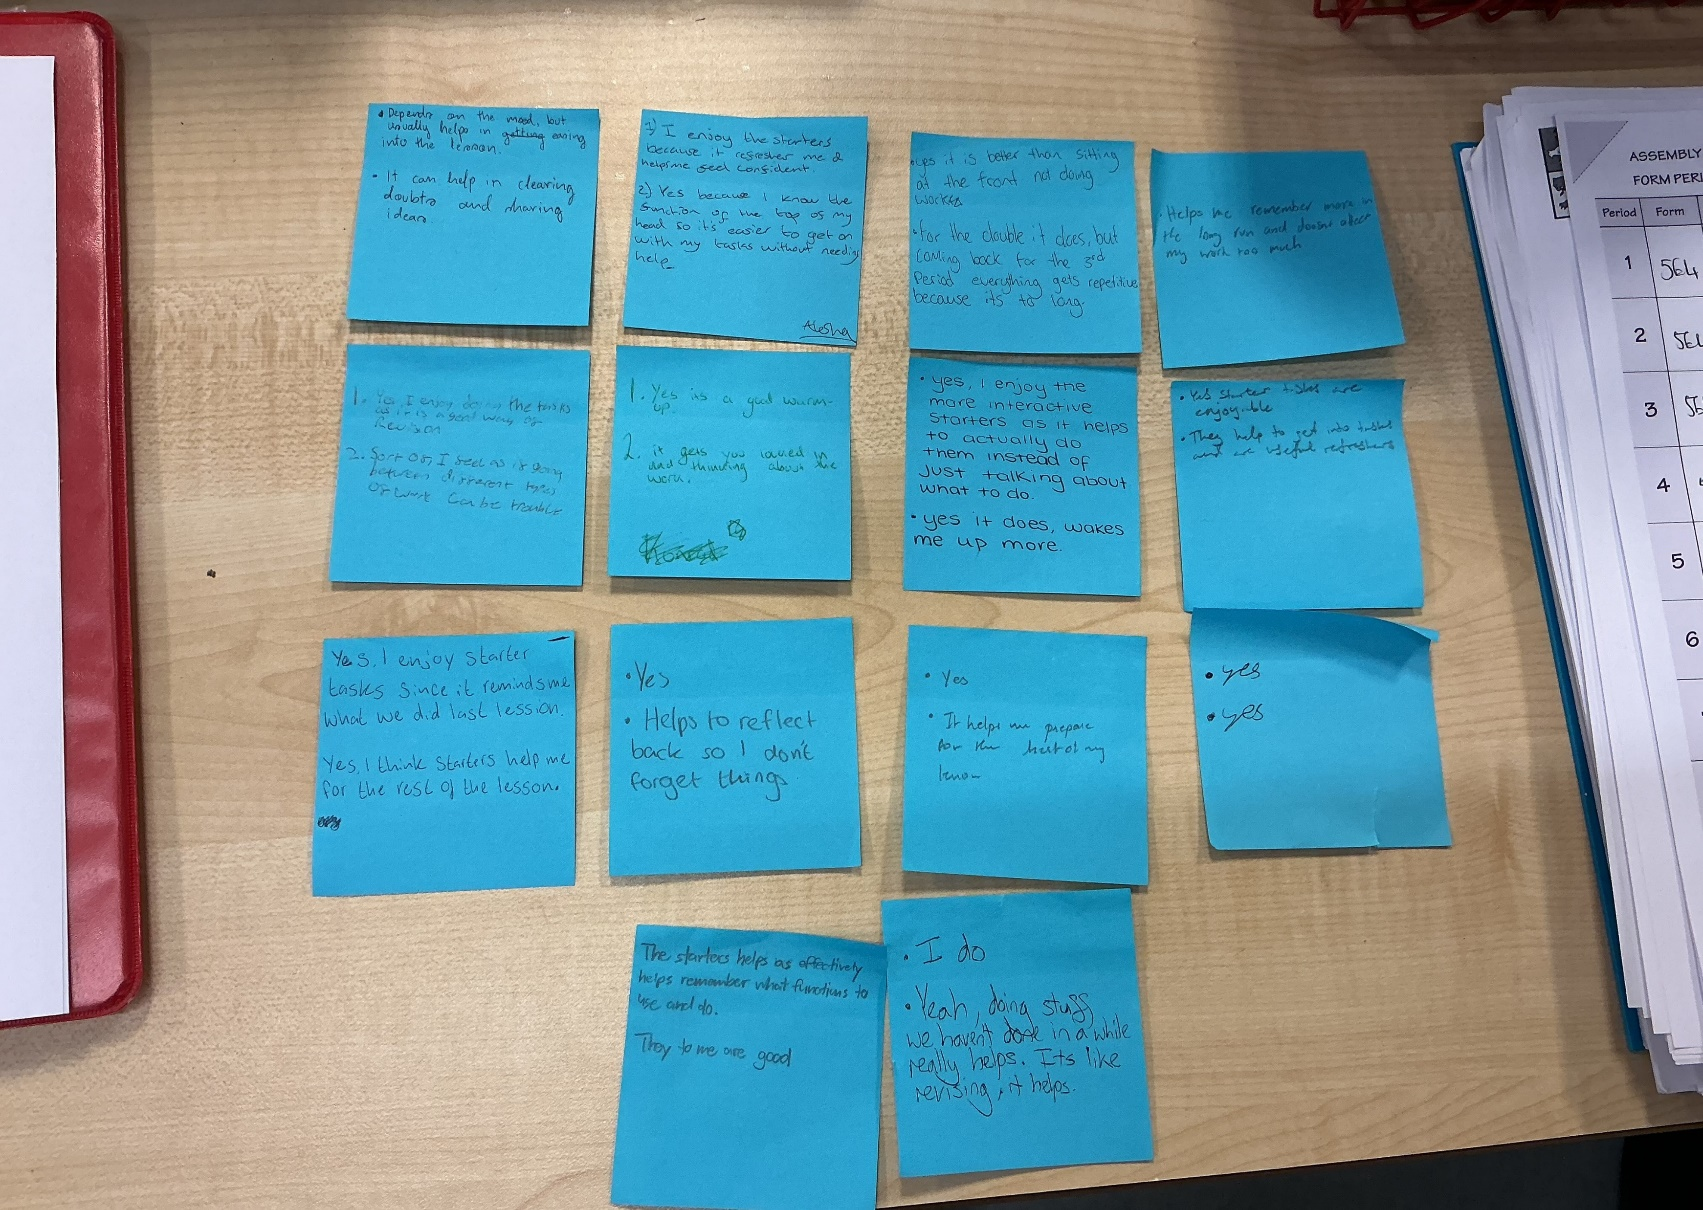 • Depends on the mood, but
usually helps in getting easing
into the lesson.
• It can help in clearing
doubts and sharing
ideas.
1) I enjoy the starters
because it refreshes me &
helps me feel confident.
2) Yes because I know the
function of the top of my
head so it's easier to get on
with my tasks without needing
help
Alesha
• yes it is better than sitting
at the front not doing
works
• For the double it does, but
coming back for the 3rd
Period everything gets repetitive
because its to long.
• Helps me remember more in
the long run and doesnt affect
my work too much
1. Yes I enjoy doing the tasks
as it is a good way of
Revision
2. Sort of, I feel as if going
between different types
of work can be trouble
1. Yes is a good warm-
up.
2. it gets you in
and thinking about the
work.
• yes, I enjoy the
more interactive
starters as it helps
to actually do
them instead of
just talking about
what to do.
• yes it does, wakes
me up more.
• Yes starter tasks are
enjoyable
• They help to get into tasks
and are useful refreshers
Yes, I enjoy starter
tasks since it reminds me
what we did last lession.
Yes, I think starters help me
for the rest of the lesson.
• Yes
• Helps to reflect
back so I don't
forget things
• Yes
• It helps me prepare
for the of my
• yes
• yes
The starters helps as effectively
helps remember what functions to
use and do.
They to me are good
• I do
• Yeah, doing stuff
we haven't done in a while
really helps. Its like
revising, it helps.
ASSEMBLY
FORM PERI
Period Form
1 564
2
3
4
5
6